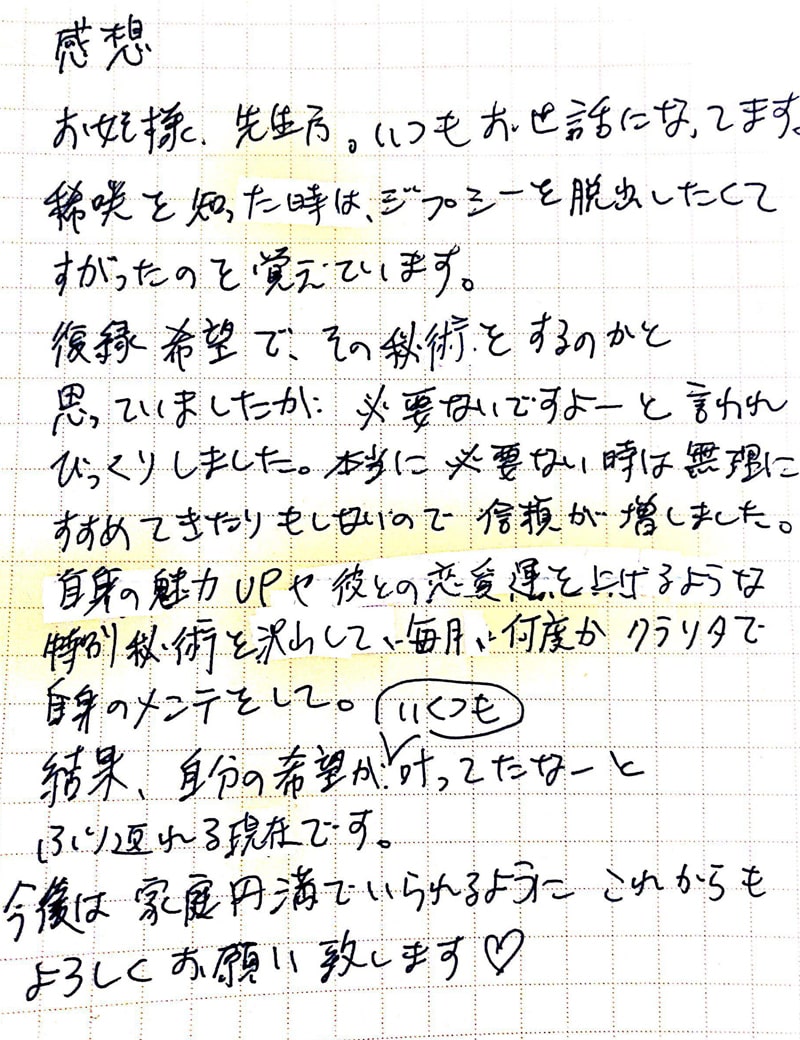 感想
お姫様、先生方。いつもお世話になってます。
稀咲を知った時は、ジプシーを脱出したくて
すがったのを覚えています。
復縁希望で、その秘術をするのかと
思っていましたが、必要ないですよーと言われ
びっくりしました。本当に必要ない時は無理に
すすめてきたりもしないので信頼が増しました。
自身の魅力UPや彼との恋愛運を上げるような
特別秘術を沢山してい毎月い何度かクラリタで
自身のメンテをして。
いくつも
結果、自分の希望が叶ってたなーと
ふり返れる現在です。
今後は家庭円満でいられるように これからも
よろしくお願い致します♡